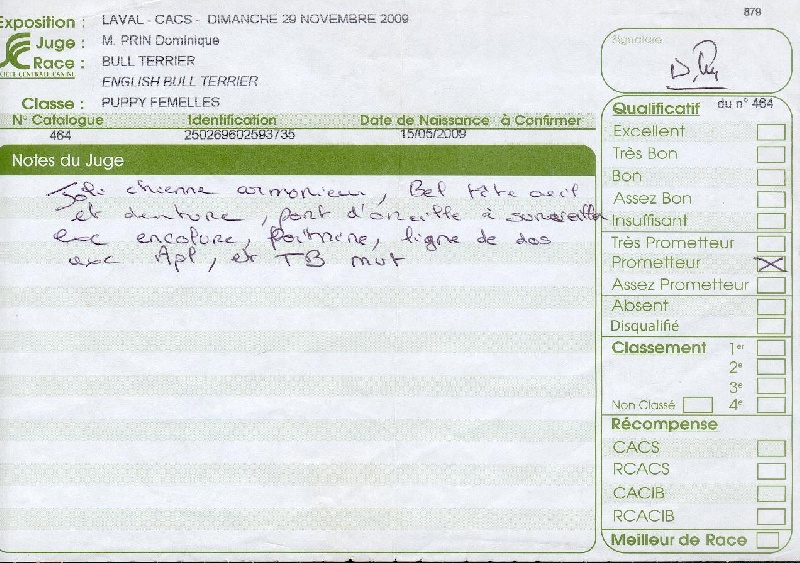 879
Exposition : LAVAL - CACS - DIMANCHE 29 NOVEMBRE 2009
Juge : M. PRIN Dominique
Race : BULL TERRIER
ENGLISH BULL TERRIER
Classe : PUPPY FEMELLES
N° Catalogue Identification Date de Naissance à Confirmer
464 250269602593735 15/05/2009
Notes du Juge
Joli chienne armonieux, Bel tête oeil
et denture, port d'oreille à surveiller
exc encolure, poitrine, ligne de dos
exc Apl, et TB mvt
Signature
Qualificatif du n° 464
Excellent
Très Bon
Bon
Assez Bon
Insuffisant
Très Prometteur
Prometteur X
Assez Prometteur
Absent
Disqualifié
Classement 1er
2e
3e
Non Classé 4e
Récompense
CACS
RCACS
CACIB
RCACIB
Meilleur de Race